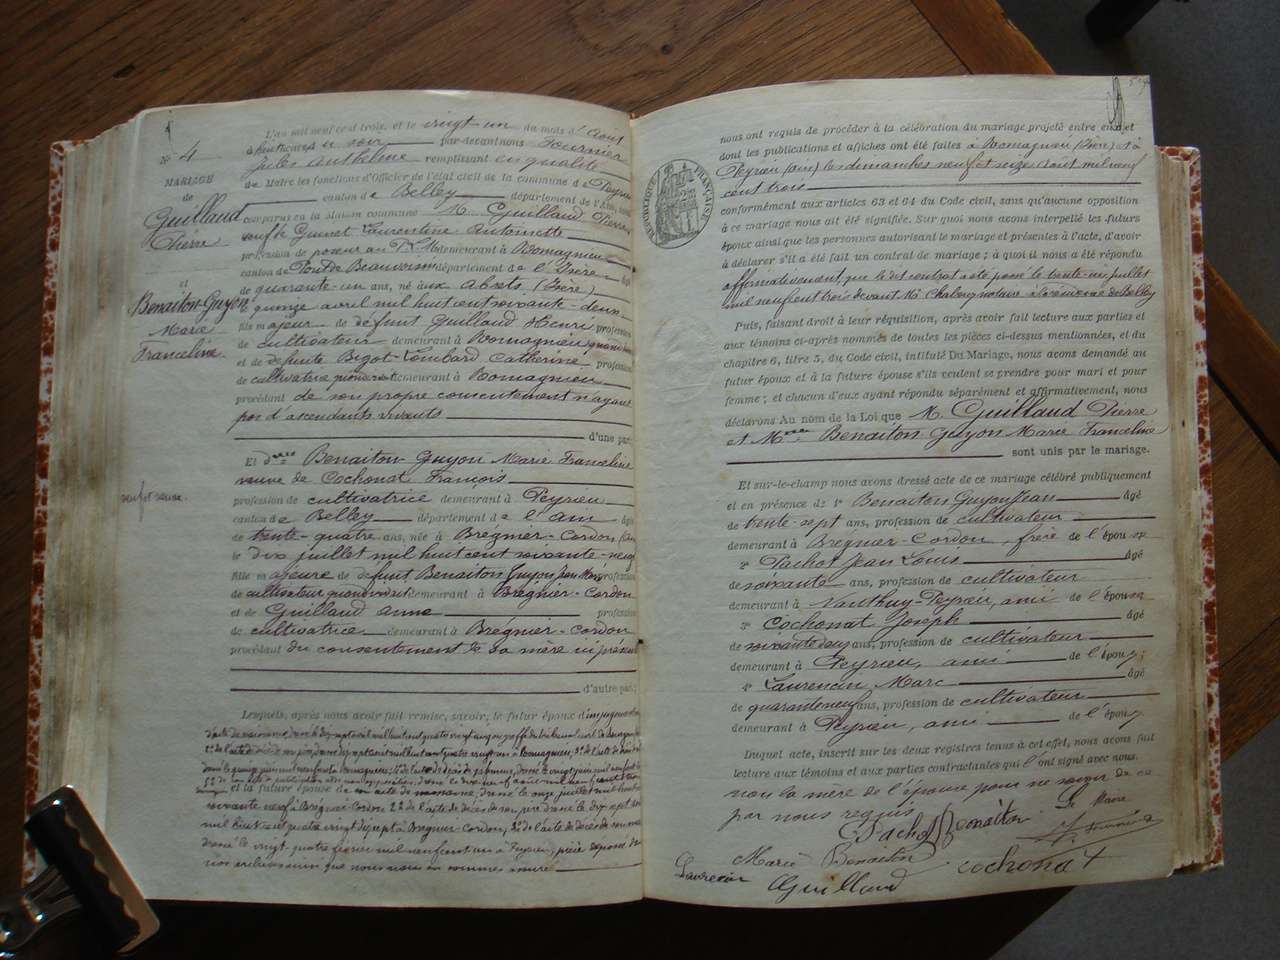 L'an mil neuf cent trois, et le vingt un du mois d'Août
à huit heures du soir par-devant nous Fournier
Jules Anthelme remplissant en qualité
de Maire les fonctions d'Officier de l'état civil de la commune de Peyrieu
canton de Belley département de l'Ain,
comparus en la Maison commune M. Guillaud Pierre
veuf de Guinet Laurentine Antoinette
profession de poseur au P.L.M. demeurant à Romagnieu
canton de Pont de Beauvoisin département de l'Isère âgé
de quarante-un ans, né aux Abrets (Isère)
le quinze avril mil huit cent soixante-deux
fils majeur de défunt Guillaud Henri profession
de cultivateur demeurant à Romagnieu
et de défunte Bigot-Lombard Catherine profession
de cultivatrice demeurant à Romagnieu
procédant de son propre consentement n'ayant
pas d'ascendants vivants
d'une part
N° 4
MARIAGE
de
Guillaud
Pierre
et
Benaiton-Guyon
Marie
Franceline
veuf et veuve
Et dame Benaiton-Guyon Marie Franceline
veuve de Cochonat François
profession de cultivatrice demeurant à Peyrieu
canton de Belley département de l'Ain âgée
de trente-quatre ans, née à Brégnier-Cordon
le dix juillet mil huit cent soixante-neuf
fille majeure de défunt Benaiton Guyon Jean Marie profession
de cultivateur quand vivait demeurant à Brégnier-Cordon
et de Guillaud Anne profession
de cultivatrice demeurant à Brégnier-Cordon
procédant du consentement de sa mère ici présente
d'autre part;
Lesquels, après nous avoir fait remise, savoir: le futur époux
et la future épouse de son acte de naissance, dressé le onze juillet mil huit cent
soixante neuf à Brégnier Cordon, 2° de l'acte de décès de son père dressé le dix sept
mil huit cent quatre vingt dix sept à Brégnier-Cordon, 3° de l'acte de décès de son mari
dressé le vingt quatre février mil neuf cent un à Peyrieu, pièce déposée
aux archives ainsi que nous nous en sommes assuré
nous ont requis de procéder à la célébration du mariage projeté entre eux et
dont les publications et affiches ont été faites à Romagnieu (Isère) et à
Peyrieu (Ain) les dimanches neuf et seize Août mil neuf
cent trois
RÉPUBLIQUE FRANÇAISE
conformément aux articles 63 et 64 du Code civil, sans qu'aucune opposition
à ce mariage nous ait été signifiée. Sur quoi nous avons interpellé les futurs
époux ainsi que les personnes autorisant le mariage et présentes à l'acte, d'avoir
à déclarer s'il a été fait un contrat de mariage; à quoi il nous a été répondu
affirmativement, que le dit contrat a été passé le trente-un juillet
mil neuf cent trois devant Me notaire à la résidence de Belley
Puis, faisant droit à leur réquisition, après avoir fait lecture aux parties et
aux témoins ci-après nommés de toutes les pièces ci-dessus mentionnées, et du
chapitre 6, titre 5, du Code civil, intitulé Du Mariage, nous avons demandé au
futur époux et à la future épouse s'ils veulent se prendre pour mari et pour
femme; et chacun d'eux ayant répondu séparément et affirmativement, nous
déclarons Au nom de la Loi que M. Guillaud Pierre
et Mme Benaiton Guyon Marie Franceline
sont unis par le mariage.
Et sur-le-champ nous avons dressé acte de ce mariage célébré publiquement
et en présence de 1° Benaiton Guyon Jean âgé
de trente-sept ans, profession de cultivateur
demeurant à Brégnier-Cordon, frère de l'épouse
2° Pachot Jean Louis âgé
de soixante ans, profession de cultivateur
demeurant à Nanthuy-Peyrieu, ami de l'épouse
3° Cochonat Joseph âgé
de soixante deux ans, profession de cultivateur
demeurant à Peyrieu, ami de l'époux;
4° Laurencin Marc âgé
de quarante neuf ans, profession de cultivateur
demeurant à Peyrieu, ami de l'époux
Duquel acte, inscrit sur les deux registres tenus à cet effet, nous avons fait
lecture aux témoins et aux parties contractantes qui l'ont signé avec nous
non la mère de l'épouse pour ne savoir de ce
par nous requis
Pachot Benaiton Le Maire
Marie Benaiton
Laurencin Guillaud Cochonat